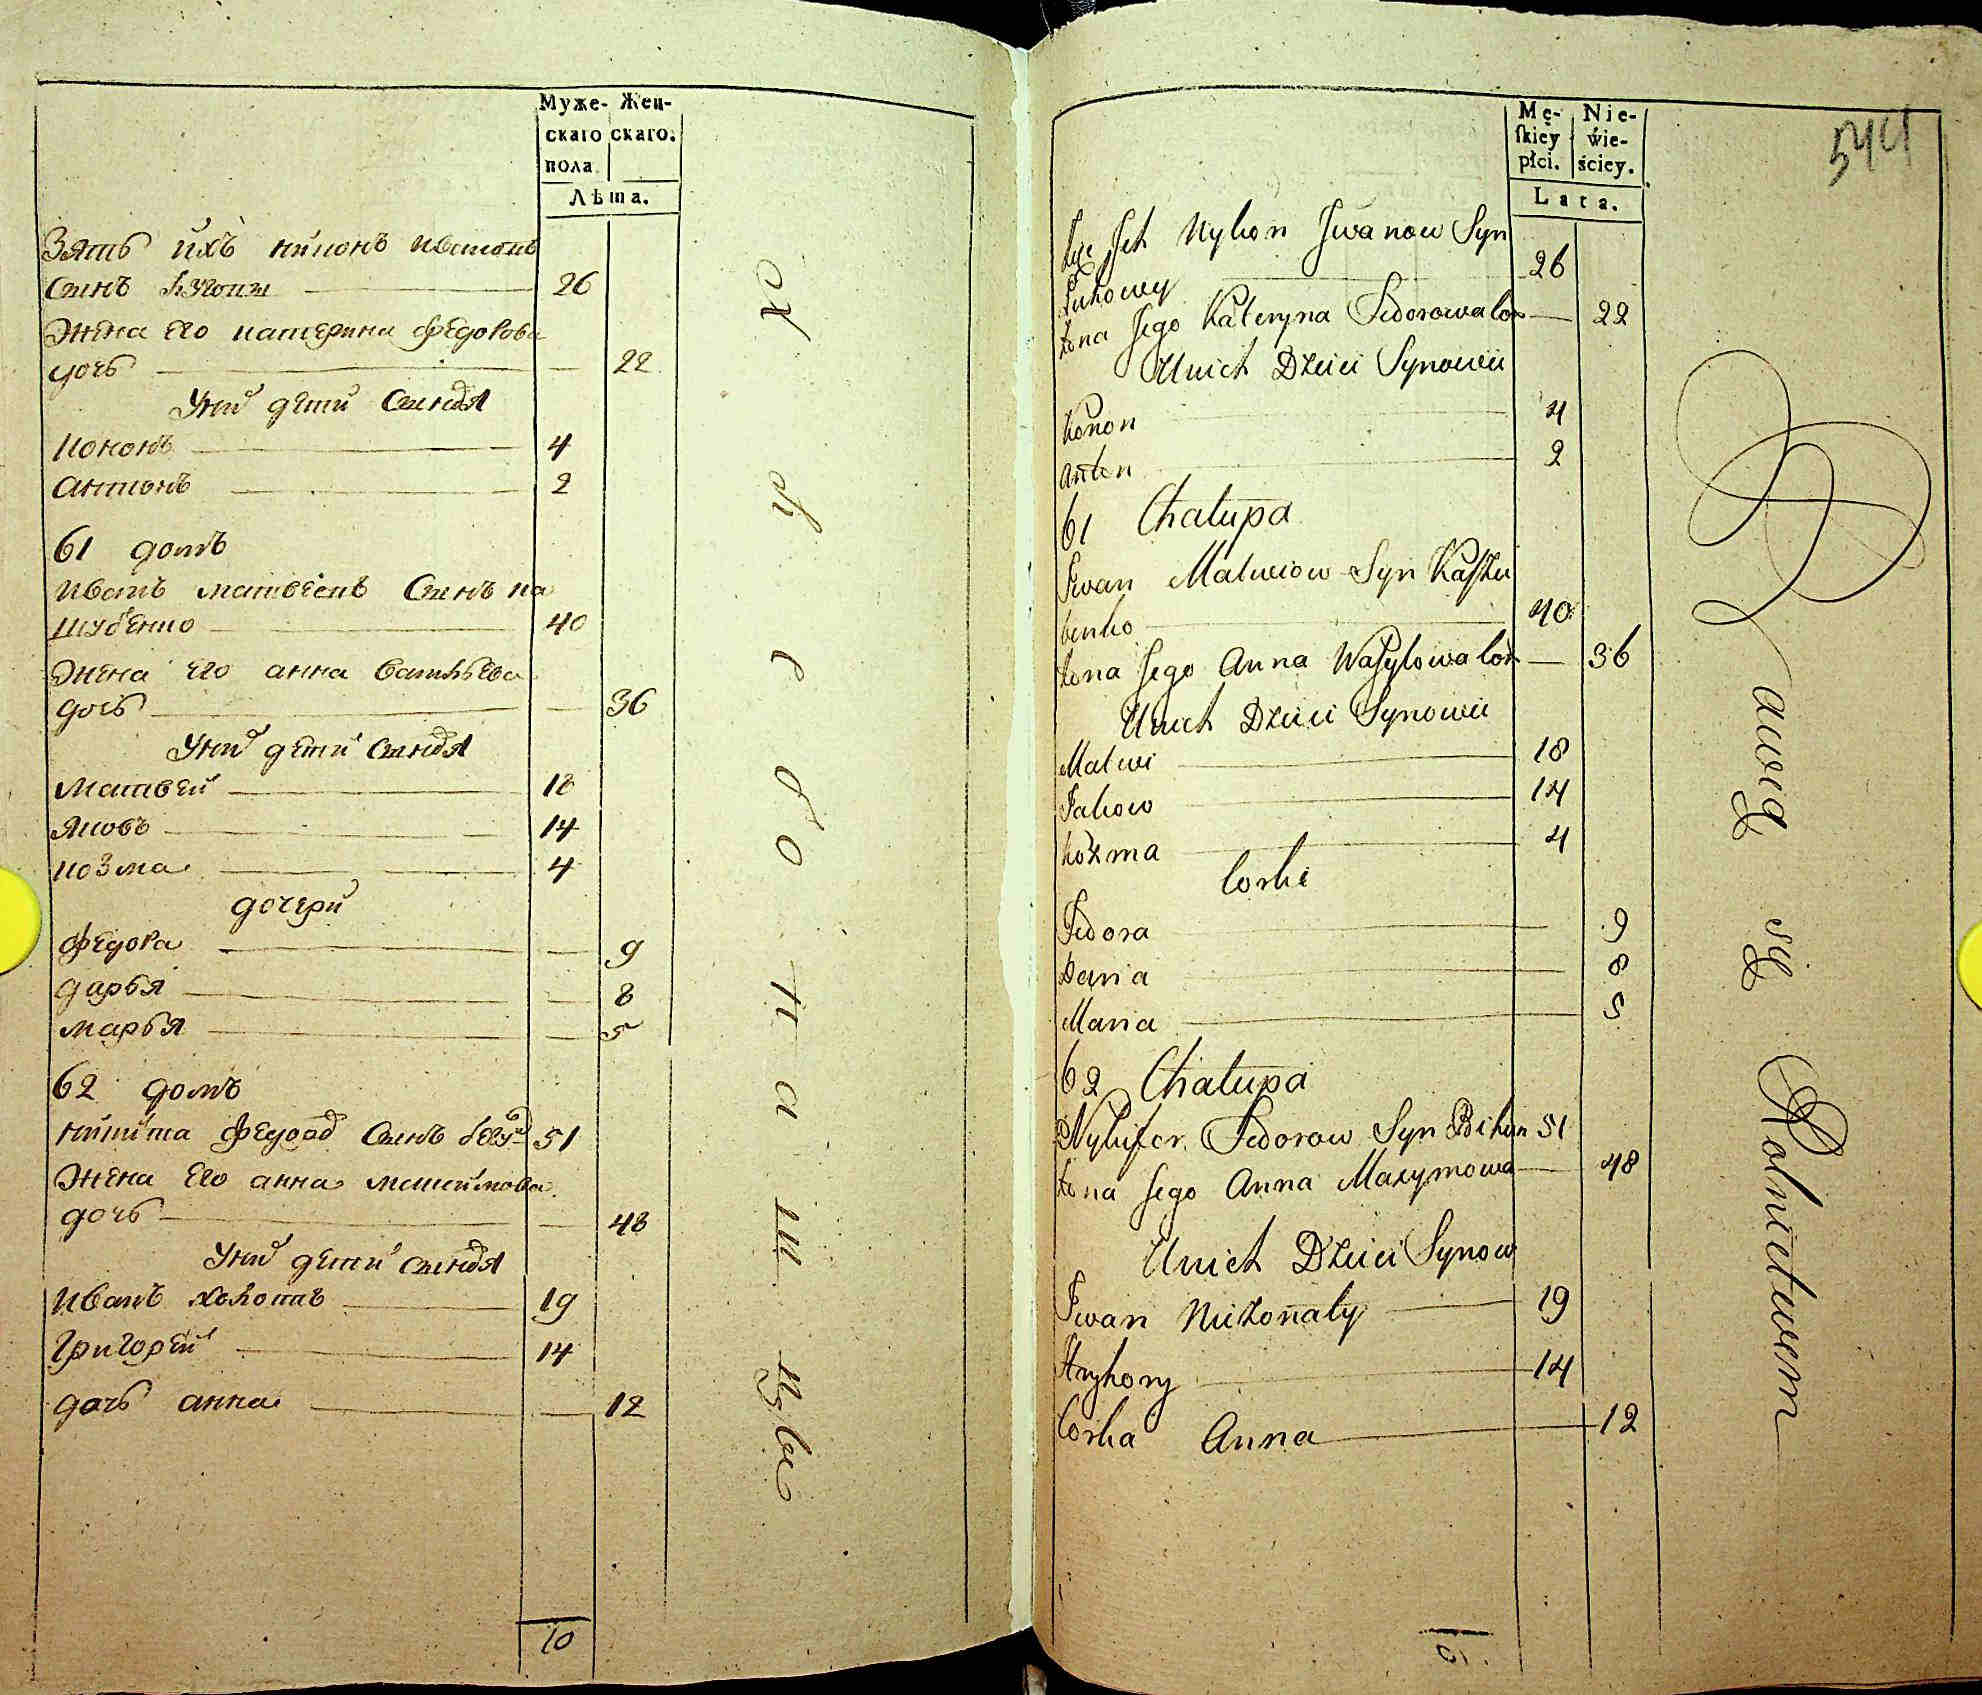 Муже- Жен-
скаго скаго.
пола
Лѣта.
Зять ихъ никонъ ивановъ
Синъ 26
Жена его катерина федорова
дочь 22
У них дети Синовя
Кононъ 4
антонъ 2
61 домъ
иванъ матвеевъ Синъ ка
шубенко 40
Жена его анна василъева
дочь 36
У них дети Синовя
матвей 18
яковъ 14
козма 4
дочери
федора 9
дарья 8
марья 5
62 домъ
никита федоров Синъ 51
Жена его анна максимова
дочь 48
У них дети синовя
иванъ холостъ 19
григорей 14
дочь анна 12
10
хлебопашцы
Mę- Nie-
skiey wie-
płci. ściey.
Lata.
544
Zęc Jch Nykon Jwanow Syn
26
Żona Jego Kateryna Fedorowa Cor 22
U nich Dzieci Synowie
Konon 4
Anton 2
61 Chałupa
Jwan Matwiow Syn Kaszu
benko 40
Żona Jego Anna Wasylowa Cor 36
U nich Dzieci Synowie
Matwi 18
Jakow 14
Kozma 4
Corki
Fedora 9
Daria 8
Maria 5
62 Chałupa
Nykifor Fedorow Syn 51
Żona Jego Anna Maxymowa 48
U nich Dzieci Synow
Jwan Nieżonaty 19
Hryhory 14
Corka Anna 12
Bawią się Rolnictwem